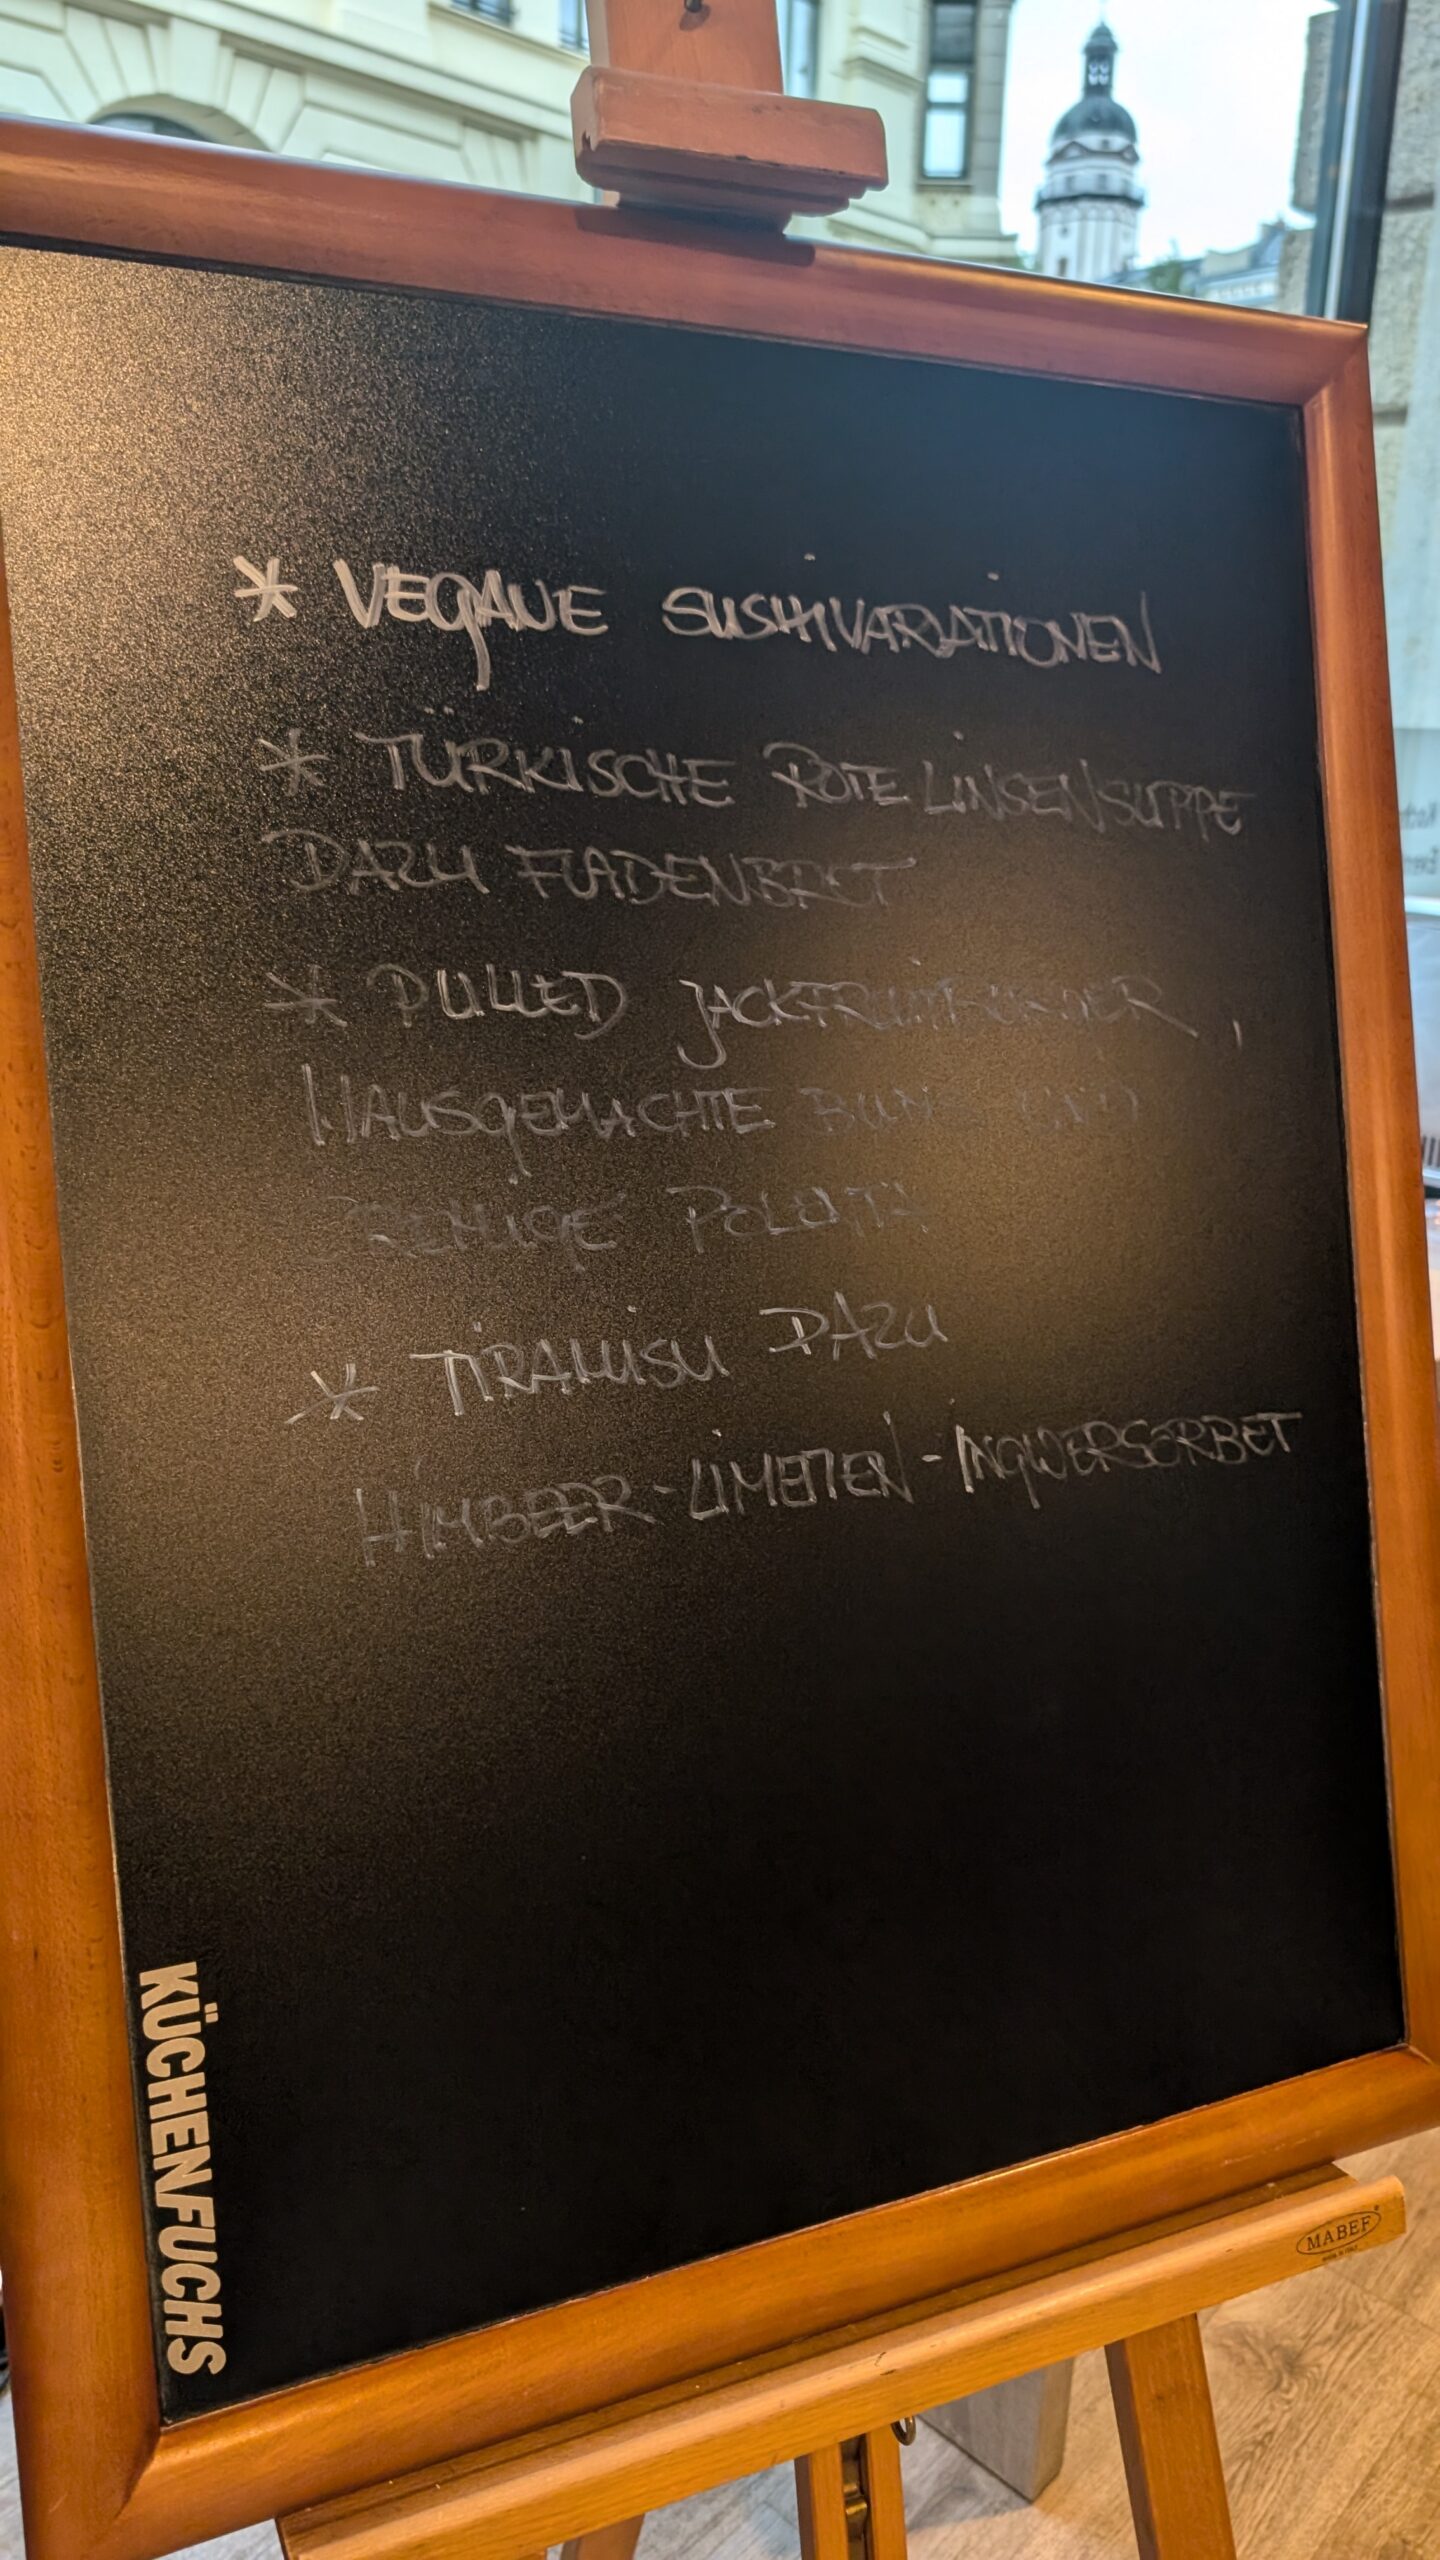 * VEGANE SUSHIVARIATIONEN
* TÜRKISCHE ROTE LINSENSUPPE
DAZU FLADENBROT
* PULLED JACKFRUITBURGER,
HAUSGEMACHTE BUNS UND
CREMIGE POLENTA
* TIRAMISU DAZU
HIMBEER-LIMETTEN-INGWERSORBET
KÜCHENFUCHS
MABEF